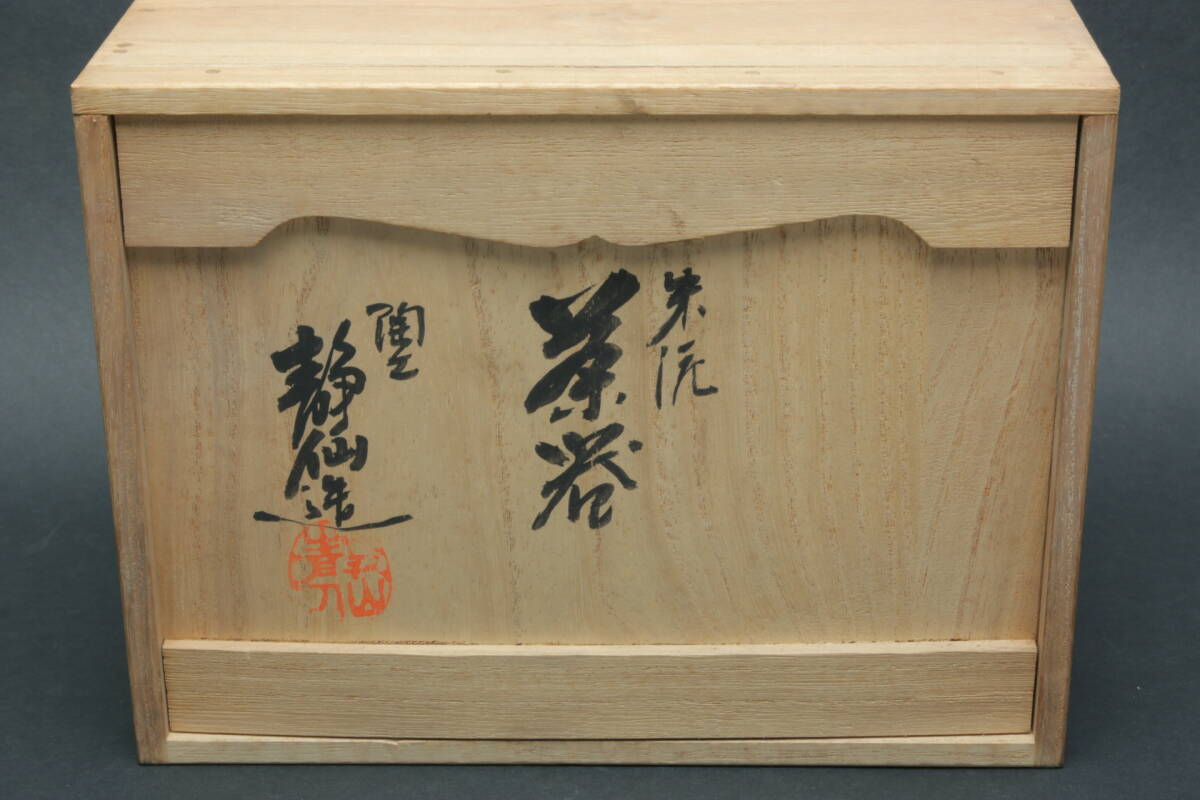 朱泥
茶器
陶工
静仙造